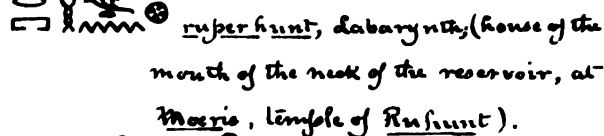 ruperhunt, Labarynth, (house of the
mouth of the neck of the reservoir, at
Moeris, temple of Ruhunt).